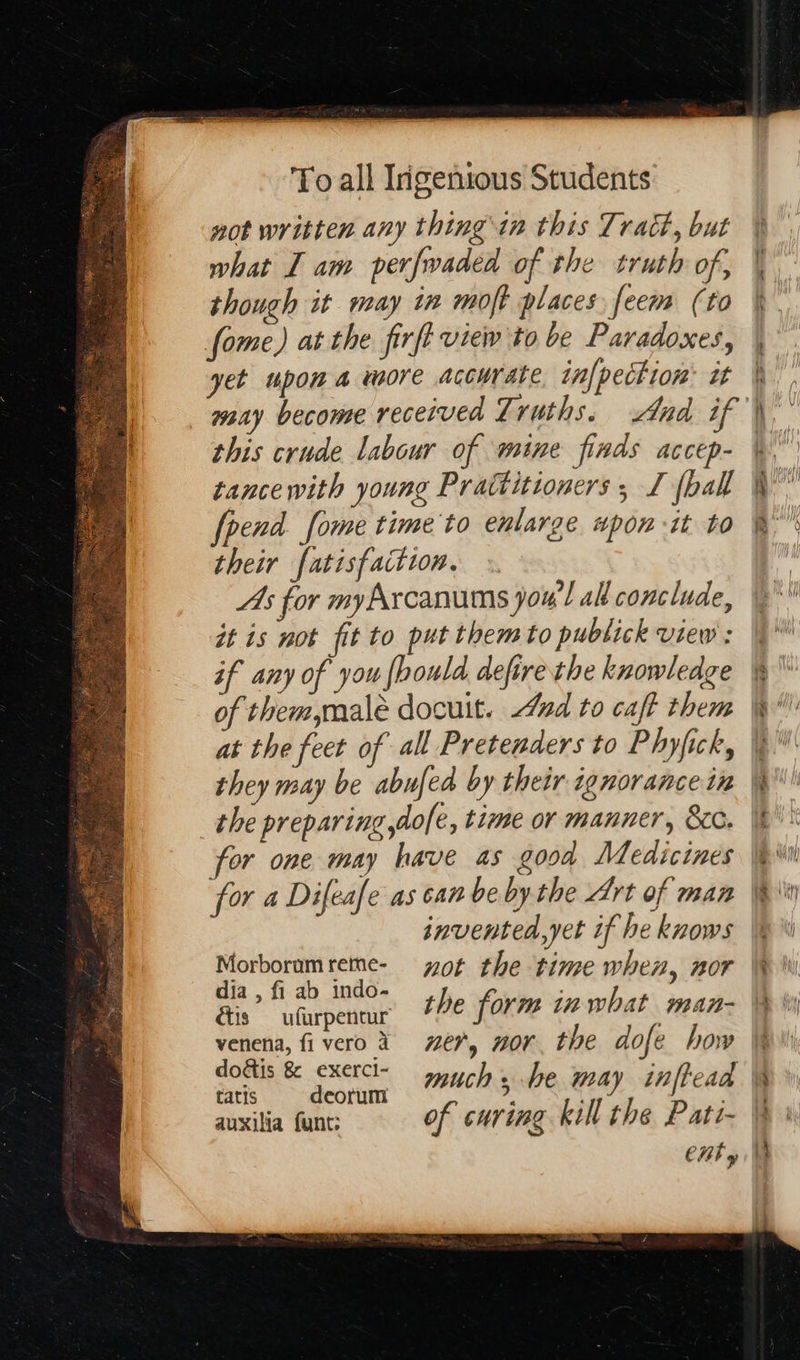 To all Ingenious Students
not written any thing in this Tract, but
what I am perſwaded of the truth of,
though it may in moſt places ſeem (to
ſome) at the firſt view to be Paradoxes,
yet upon a more accurate inſpection it
may become received Truths. And if
this crude labour of mine finds accep-
tance with young Practitioners; I ſhall
ſpend ſome time to enlarge upon it to
their ſatisfaction.
As for my Arcanums you'l all conclude,
it is not fit to put them to publick view:
if any of you ſhould deſire the knowledge
of them, malè docuit. And to caſt them
at the feet of all Pretenders to Phyſick,
they may be abuſed by their ignorance in
the preparing, doſe, time or manner, &c.
for one may have as good Medicines
for a Diſeaſe as can be by the Art of man
invented, yet if he knows
not the time when, nor
the form in what man-
ner, nor the doſe how
much; he may inſtead
of curing kill the Pati-
ent,
Morborum reme-
dia, ſi ab indo-
ctis uſurpentur
venena, ſi vero à
doctis & exerci-
tatis deorum
auxilia ſunt: